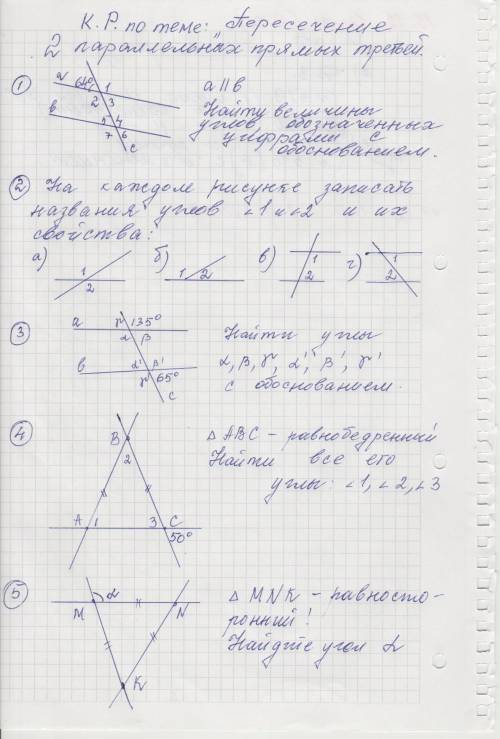 К. Р. по теме: „Пересечение
2 параллельных прямых третьей.
① a 64° 1 a || b
2 3 Найти величины
в 5 4 углов обозначенных
7 6 цифрами с
c обоснованием.
② На каждом рисунке записать
названия углов ∠1 и ∠2 и их
свойства:
а) 1 2 б) 1 2 в) 1 2 г) 1 2
③ a γ 135°
α β Найти углы
в α' β' α, β, γ, α', β', γ'
γ' 65° с обоснованием.
c
④ B 2 Δ ABC – равнобедренный
Найти все его
углы: ∠1, ∠2, ∠3
A 1 3 C
50°
⑤ α Δ MNK – равносто-
M N ронний!
Найдите угол α
K